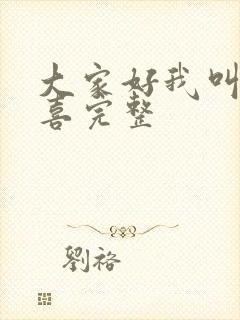 大家好我叫
喜完整
劉裕